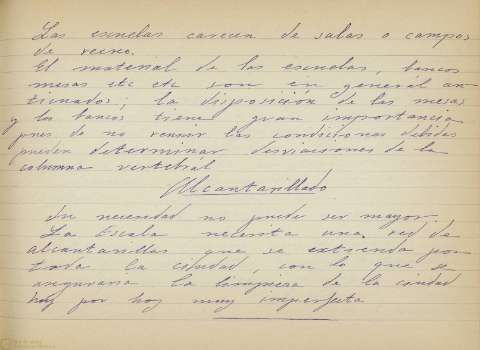 Las escuelas carecen de salas o campos
de recreo.
El material de las escuelas, bancos
mesas etc etc son en general an-
ticuados; la disposición de las mesas
y los bancos tiene gran importancia
pues de no reunir las condiciones debidas
pueden determinar desviaciones de la
columna vertebral
Alcantarillado
Su necesidad no puede ser mayor.
La Escala necesita una red de
alcantarillas que se extienda por
toda la ciudad, con lo que se
aseguraria la limpieza de la ciudad
hoy por hoy muy imperfecta